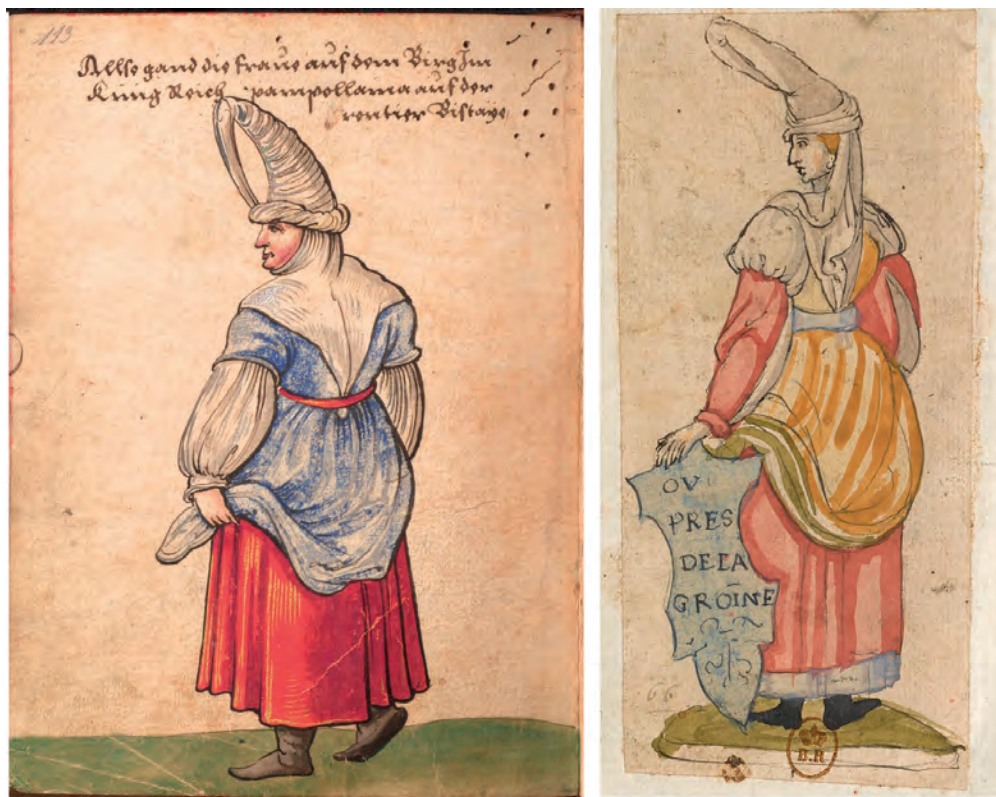 113
Allso gand die fraue auf dem Birg Im
Küng Reich pampollana auf der
rentier Biscaye
OV
PRES
DE LA
GROĪNE
B.R